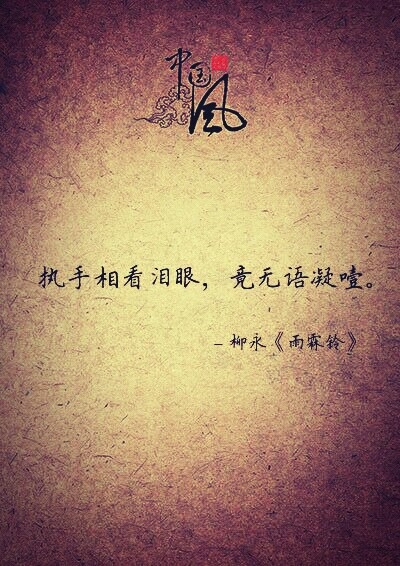 中国风
执手相看泪眼，竟无语凝噎。
– 柳永《雨霖铃》